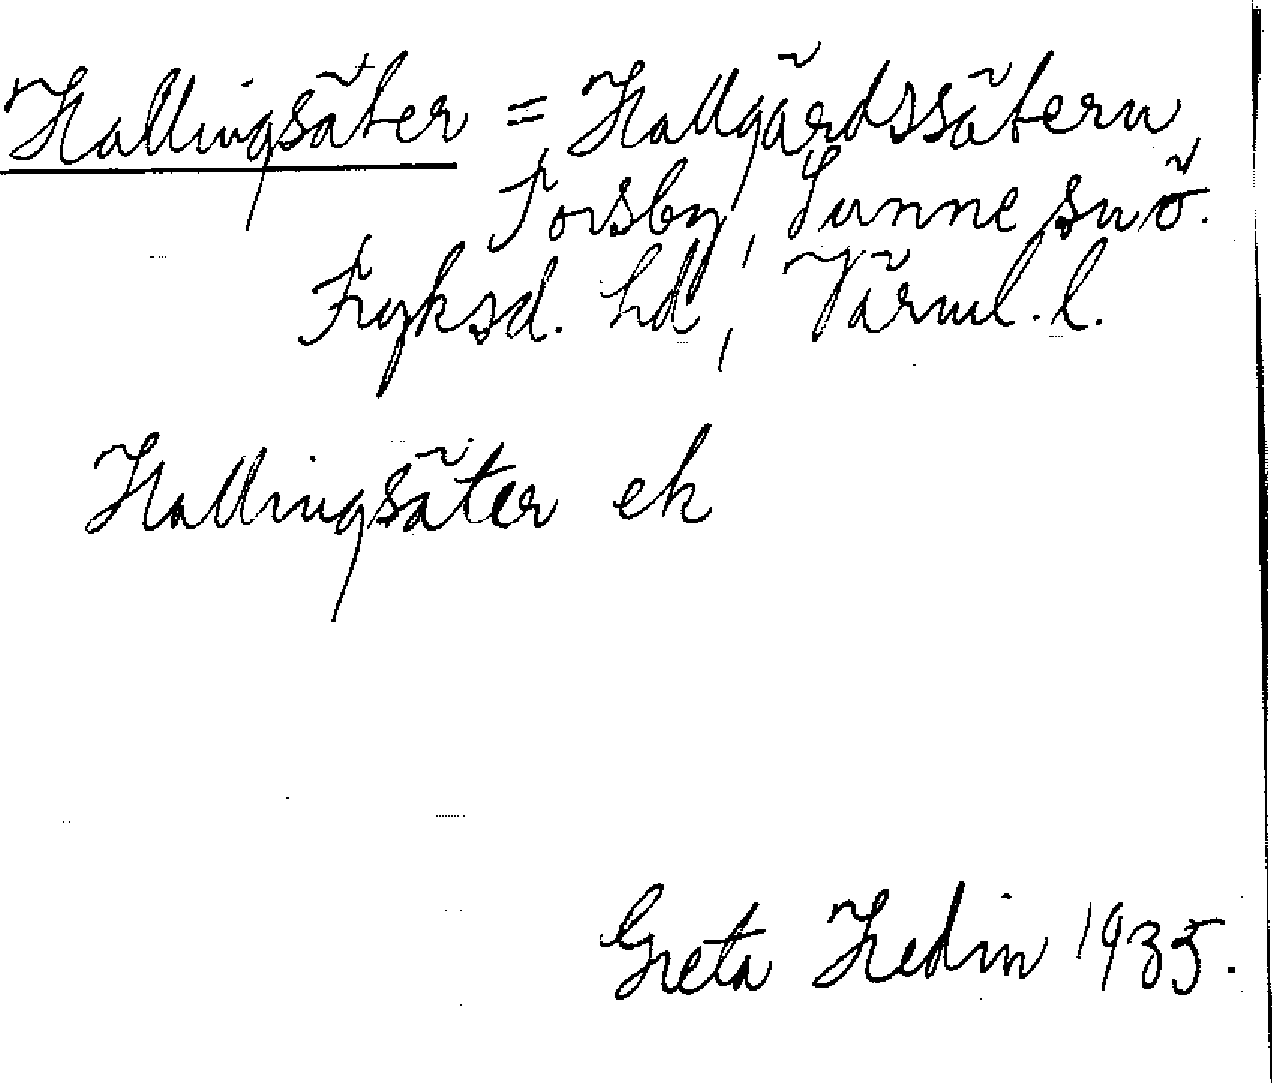 Hallingsäter = Hallgårdssätern,
Forsby, Sunne snö.
Fryksd. hd, Värml. l.
Hallingsäter ek
Greta Hedin 1935.